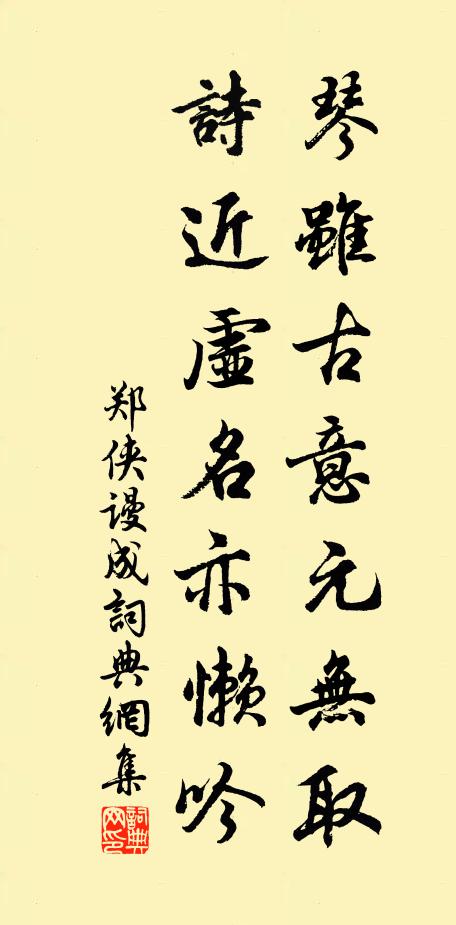 琴雖古意元無取
詩近虛名亦懶吟
郑侠谩成詞典網集
詞典网印